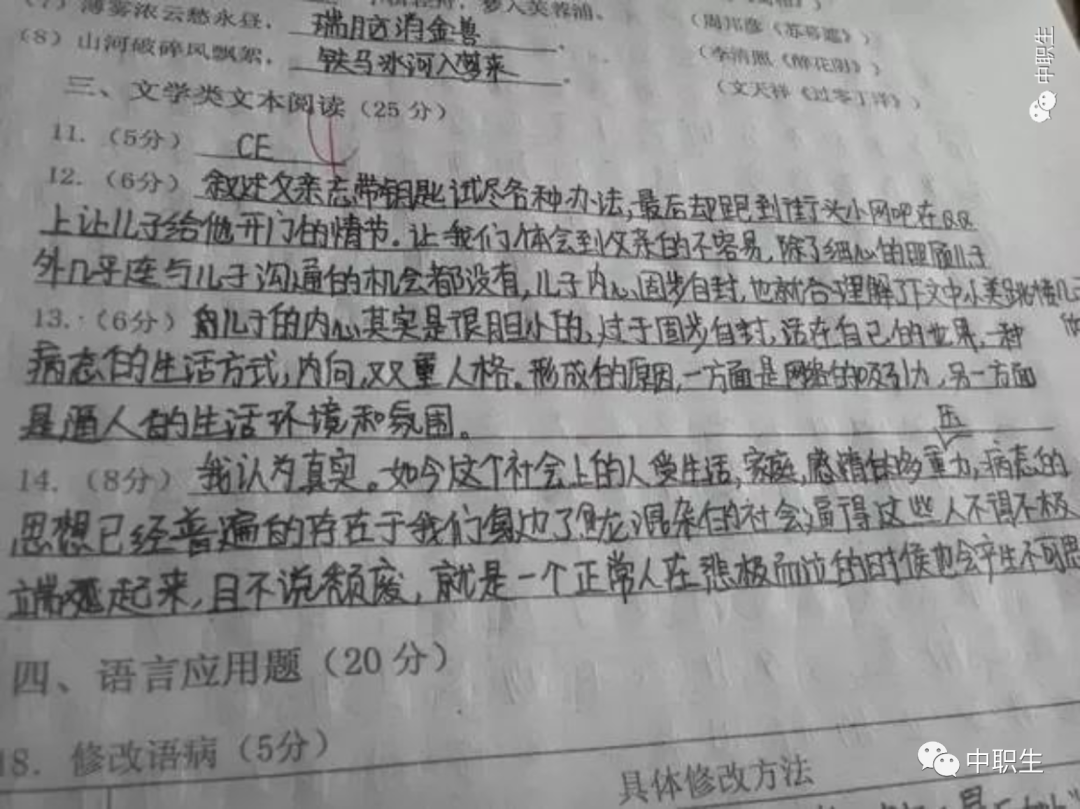 (7) 薄雾浓云愁永昼，瑞脑消金兽。 (周邦彦《苏幕遮》)
(8) 山河破碎风飘絮，铁马冰河入梦来。 (李清照《醉花阴》)
(文天祥《过零丁洋》)
三、文学类文本阅读（25分）
11.（5分）CE
12.（6分）叙述父亲忘带钥匙试尽各种办法,最后却跑到街头小网吧在QQ
上让儿子给他开门的情节。让我们体会到父亲的不容易,除了细心的照顾儿子
外几乎连与儿子沟通的机会都没有,儿子内心固步自封,也就合理解了下文中小美
13.（6分）儿子的内心其实是很胆小的,过于固步自封,活在自己的世界,一种
病态的生活方式,内向,双重人格。形成的原因,一方面是网络的吸引力,另一方面
是逼人的生活环境和氛围。
14.（8分）我认为真实。如今这个社会上的人受生活,家庭,感情的多重压力,病态的
思想已经普遍的存在于我们身边了,鱼龙混杂的社会逼得这些人不得不极
端起来,且不说颓废,就是一个正常人在悲极而泣的时候也会产生不可思
四、语言应用题（20分）
18. 修改语病（5分）
具体修改方法
中职生
中职生